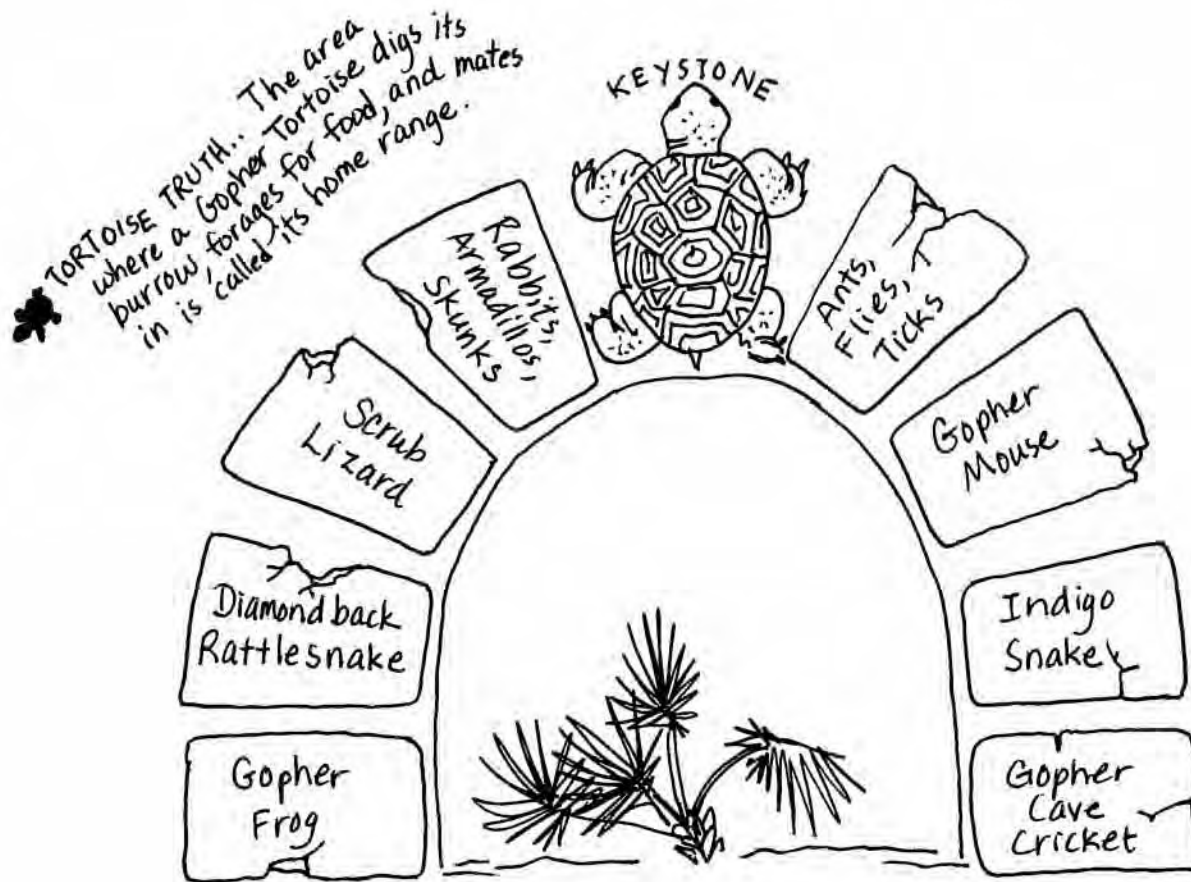 TORTOISE TRUTH.. The area
where a Gopher Tortoise digs its
burrow, forages for food, and mates
in is called its home range.
KEYSTONE
Rabbits,
Armadillos,
Skunks
Ants,
Flies, T
Ticks
Scrub
Lizard
Gopher
Mouse
Diamondback
Rattlesnake
Indigo
Snake
Gopher
Frog
Gopher
Cave
Cricket